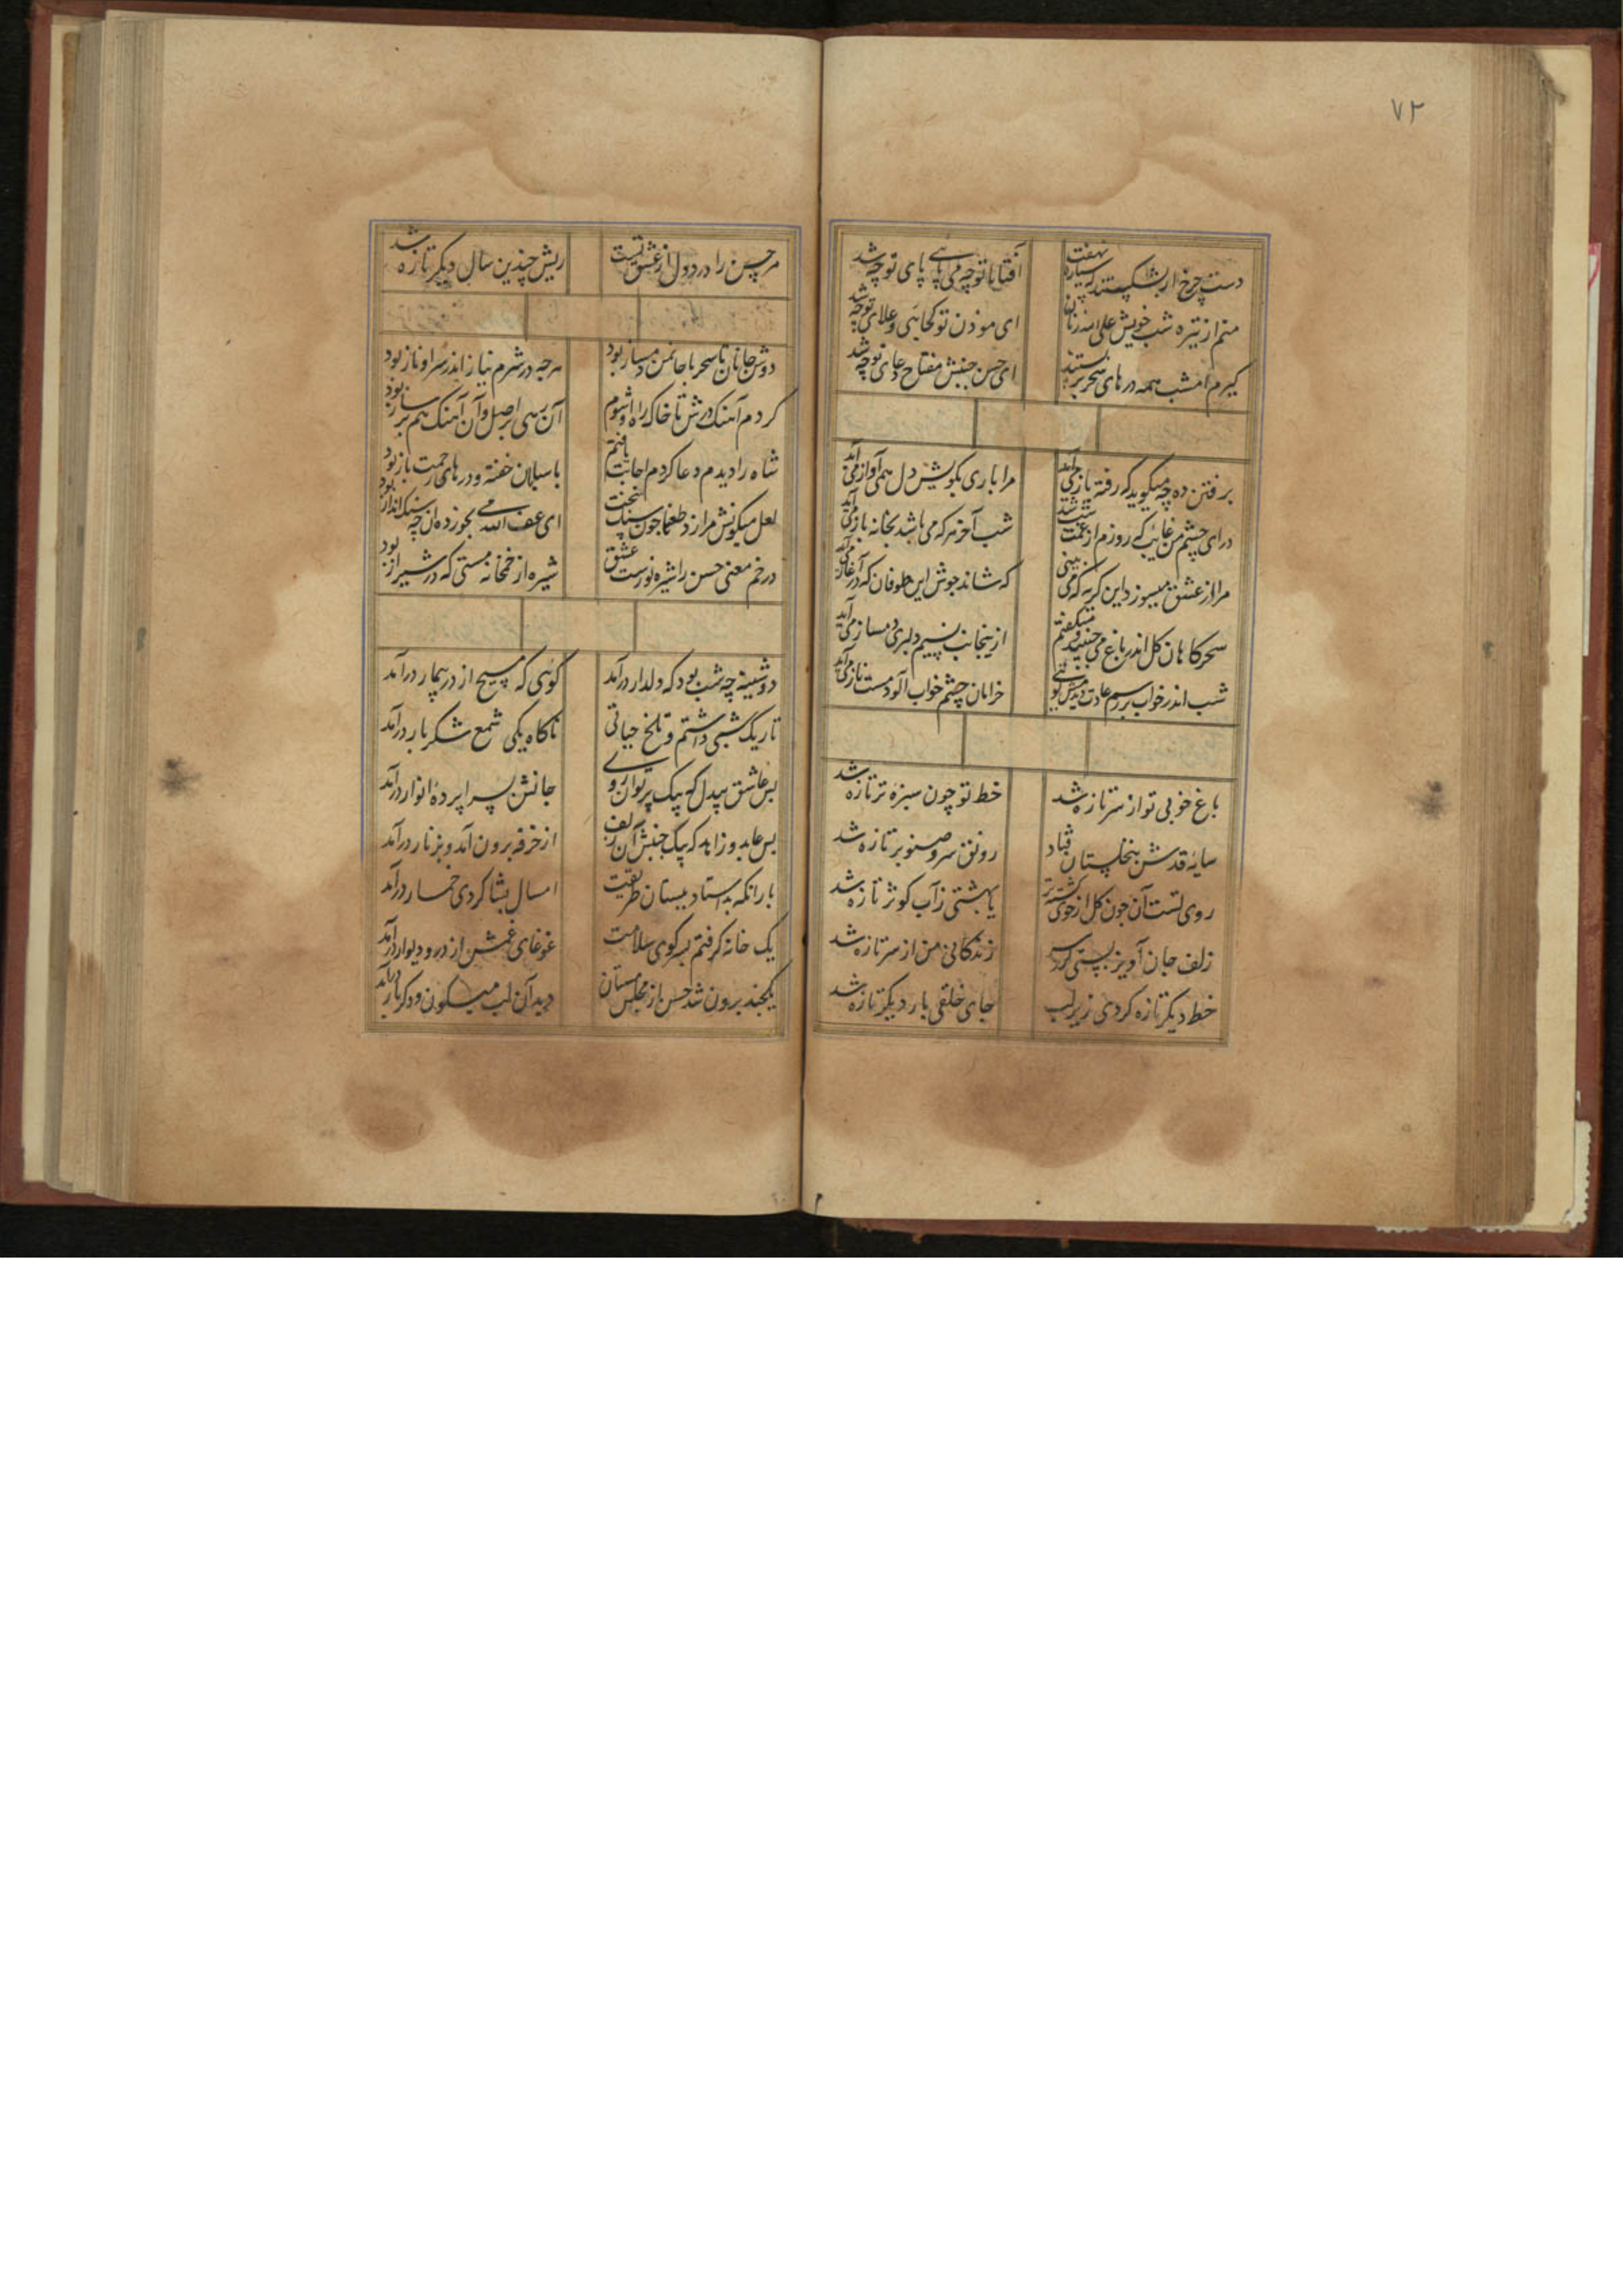 ۷۲
دست چرخ ار بشکستند که سیاره نهفت
آفتابا تو چه می پایی پای تو چه شد
منم از تیره شب خویش علی الله زنان
ای موذن تو کجایی و علای تو چه شد
گیرم امشب همه درهای سحر بربستند
ای حسن جنبش مفتاح دعای تو چه شد
برفتن ده چه میگوید که رفته باز می آید
مرا باری بگویش دل همی آواز می آید
درای چشم من غایب که روزم از غمت شب شد
شب آخر هر که می باشد بخانه باز می آید
مرا از عشق میسوزد این گریه که می بینی
که شاند جوش این طوفان که در آغاز می آید
سحرگاهان گل اندر باغ می جنبید و میگفتم
ازینجانب نسیم دلبری دمساز می آید
شب اندر خواب بر رسم عادت دیدمش گویی
خرامان چشم خواب آلود مست ناز می آید
باغ خوبی تو از سر تازه شد
خط تو چون سبزه تر تازه شد
سایه قدش بنخلستان فتاد
رونق سرو صنوبر تازه شد
روی تست آن چون گل از خوی گشته تر
یا بهشتی ز آب کوثر تازه شد
زلف جان آویز پستی کرد سر
زندگانی من از سر تازه شد
خط دیگر تازه کردی زیر لب
جای خلقی بار دیگر تازه شد
مر حسن را درد دل از عشق تست
ریش چندین سال دیگر تازه شد
دوش جانان تا سحر با جان من دمساز بود
هرچه در شرم نیاز اندر سر او ناز بود
کردم آهنگ درش تا خاک راه او شوم
آن رهی بر اصل و آن آهنگ هم بر ساز بود
شاه را دیدم دعا کردم اجابت یافتم
پاسبان خفته و درهای رحمت باز بود
لعل میگونش مرا زد طعنها چون سنگ سخت
ای عفی الله می بخور زده ان چه سنگ انداز بود
در خم معنی حسن را شیره نو رست عشق
شیره از خمخانه مستی که در شیراز بود
دوشینه چه شب بود که دلدار درآمد
گوئی که مسیح از در بیمار درآمد
تاریک شبی داشتم و تلخ حیاتی
ناگاه یکی شمع شکربار درآمد
بس عاشق بیدل که بیک پرتو آن روی
جانش بسراپرده انوار درآمد
بس عابد و زاهد که بیک جنبش آن زلف
از خرقه برون آمد و بزنار درآمد
پار آنکه بد استاد دبستان طریقت
امسال بشاگردی خمار درآمد
یک خانه گرفتم بسر کوی سلامت
غوغای غمش از در و دیوار درآمد
یکچند برون شد حسن از مجلس مستان
دید آن لب میگون و دگر بار درآمد